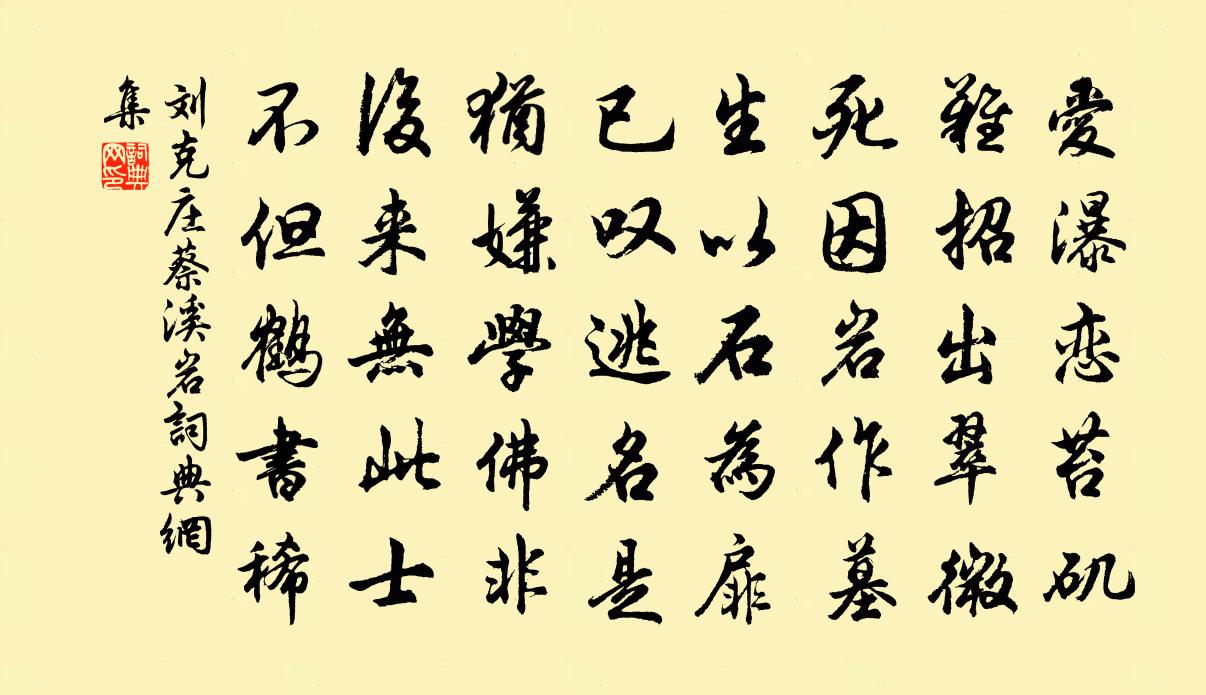 愛瀑恋苔矶
難招出翠微
死因岩作墓
生以石為扉
已叹逃名是
猶嫌學佛非
後来無此士
不但鶴書稀
刘克庄蔡溪岩詞典網
集
詞典網印